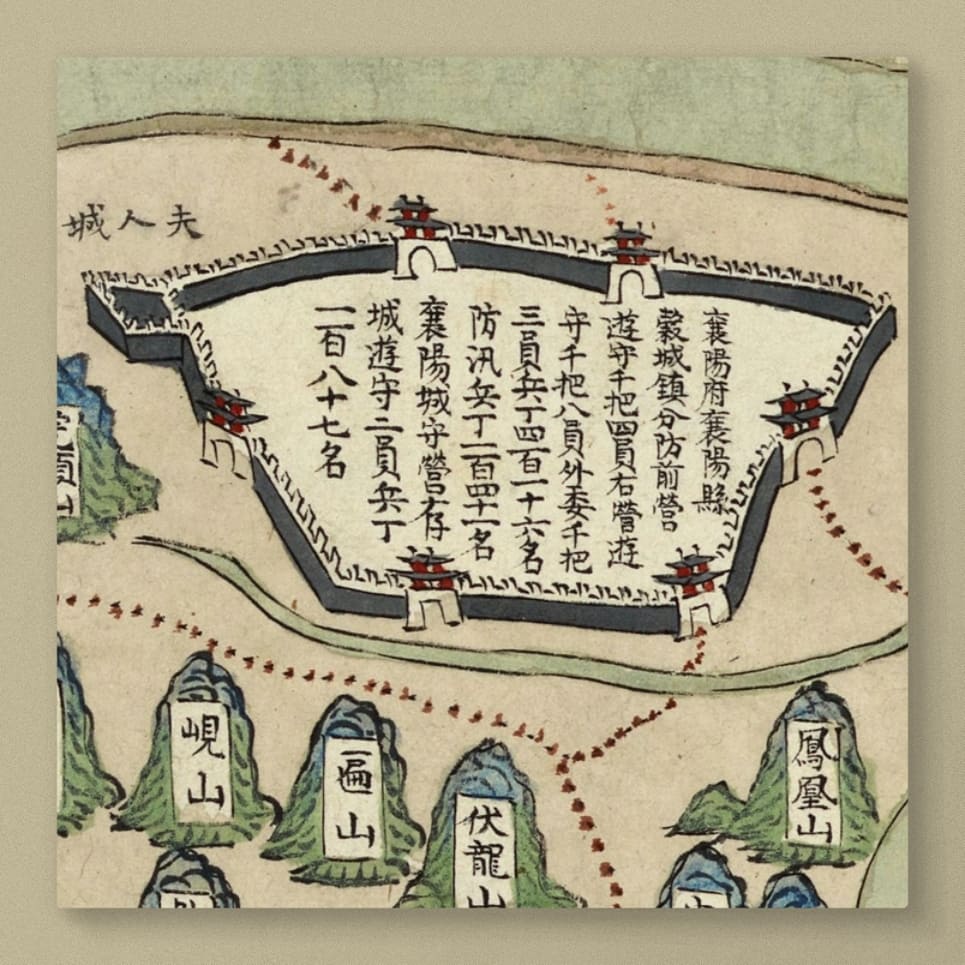 襄陽府襄陽縣
穀城鎮分防前營
遊守千把四員右營遊
守千把八員外委千把
三員兵丁四百一十六名
防汛兵丁一百四十一名
襄陽城守營存
城遊守二員兵丁
一百八十七名
夫人城
峴山
一匾山
伏龍山
鳳凰山